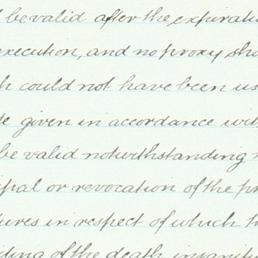 l be valid after the expirati
execution, and no proxy sha
h could not have been us
te given in accordance wit
be valid notwithstanding t
ipal or revocation of the pr
tures in respect of which t
ding of the death insanit